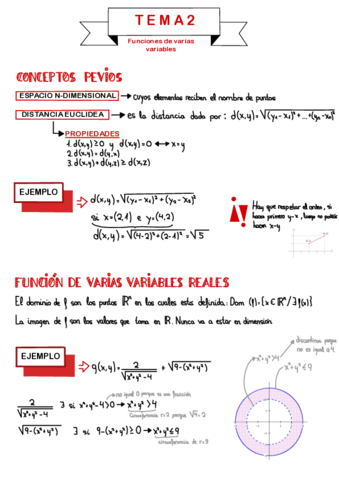 TEMA2
Funciones de varias
variables
CONCEPTOS PEVIOS
ESPACIO N-DIMENSIONAL → cuyos elementos reciben el nombre de puntos
DISTANCIA EUCLIDEA → es la distancia dada por: d(x,y)=√(y₁-x₁)²+...+(yₙ-xₙ)²
PROPIEDADES
1. d(x,y)≥0 y d(x,y)=0 ↔ x=y
2. d(x,y)=d(y,x)
3. d(x,y)+d(y,z) ≥ d(x,z)
EJEMPLO
d(x,y)=√(y₁-x₁)²+(y₂-x₂)²
si x=(2,1) e y=(4,2)
d(x,y)=√(4-2)²+(2-1)²=√5
¡! Hay que respetar el orden, si
haces primero y-x, luego no
hacer x-y
FUNCIÓN DE VARIAS VARIABLES REALES
El dominio de f son los puntos ℝⁿ en los cuales esta definida: Dom (f)={x∈ℝⁿ/∃f(x)}
La imagen de f son los valores que toma en ℝ. Nunca va a estar en dimensión
EJEMPLO
g(x,y)= 2/√x²+y²-4 + √9-(x²+y²)
no igual 0 porque es una fracción
2/√x²+y²-4 ∃ si x²+y²-4>0 → x²+y²>4
Circunferencia r=2 porque √4=2
√9-(x²+y²) ∃ si 9-(x²+y²)≥0 → x²+y²≤9
circunferencia de r=3
x²+y²>4
discontinua porque
no es igual a 4
x²+y²≤9